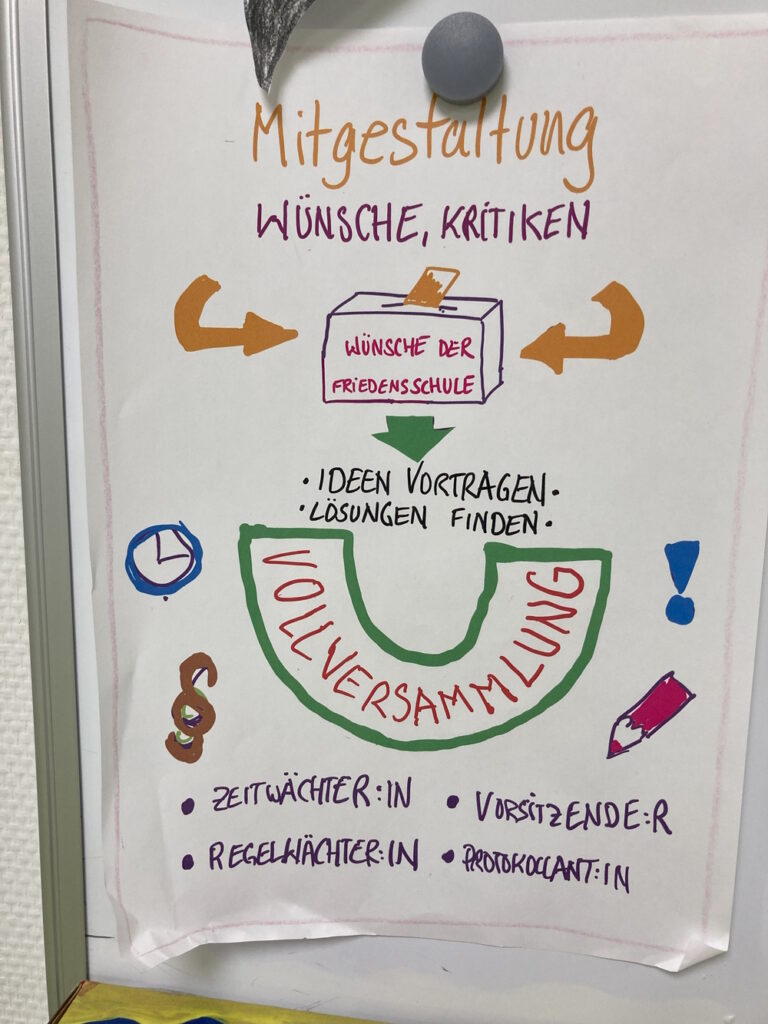 Mitgestaltung
WÜNSCHE, KRITIKEN
WÜNSCHE DER
FRIEDENSSCHULE
· IDEEN VORTRAGEN ·
· LÖSUNGEN FINDEN ·
VOLLVERSAMMLUNG
§
!
• ZEITWÄCHTER:IN
• VORSITZENDE:R
• REGELWÄCHTER:IN
• PROTOKOLLANT:IN